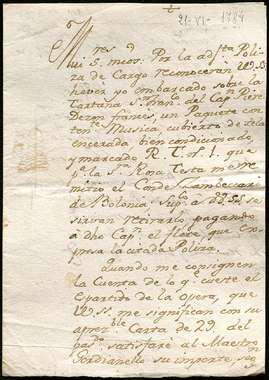 21-VI-1784
Mres
Mui S. meos. Por la adjta Poli-
za de Cargo reconoceran
haver yo embarcado sobre la
Tartana Sn Fran. del Capn
Dezon frances, un Paquete con-
tente Musica, cubierto de tela
encerada, bien condicionado
y marcado R. T. n. 1. que
pr la Sa Rosa Testa me re-
mitió el Conde Lambecari
de Bolonia. Supco a
se sirvan retirarlo pagando
a dho Capn el flete que ex-
presa la citada Poliza.
Quando me consignen
la Cuenta de lo q. cueste el
Esparcido de la Opera, que
me significan con su
apreble Carta de 29. del
pasdo satisfaré al Maestro
Gordianello su importe, seg